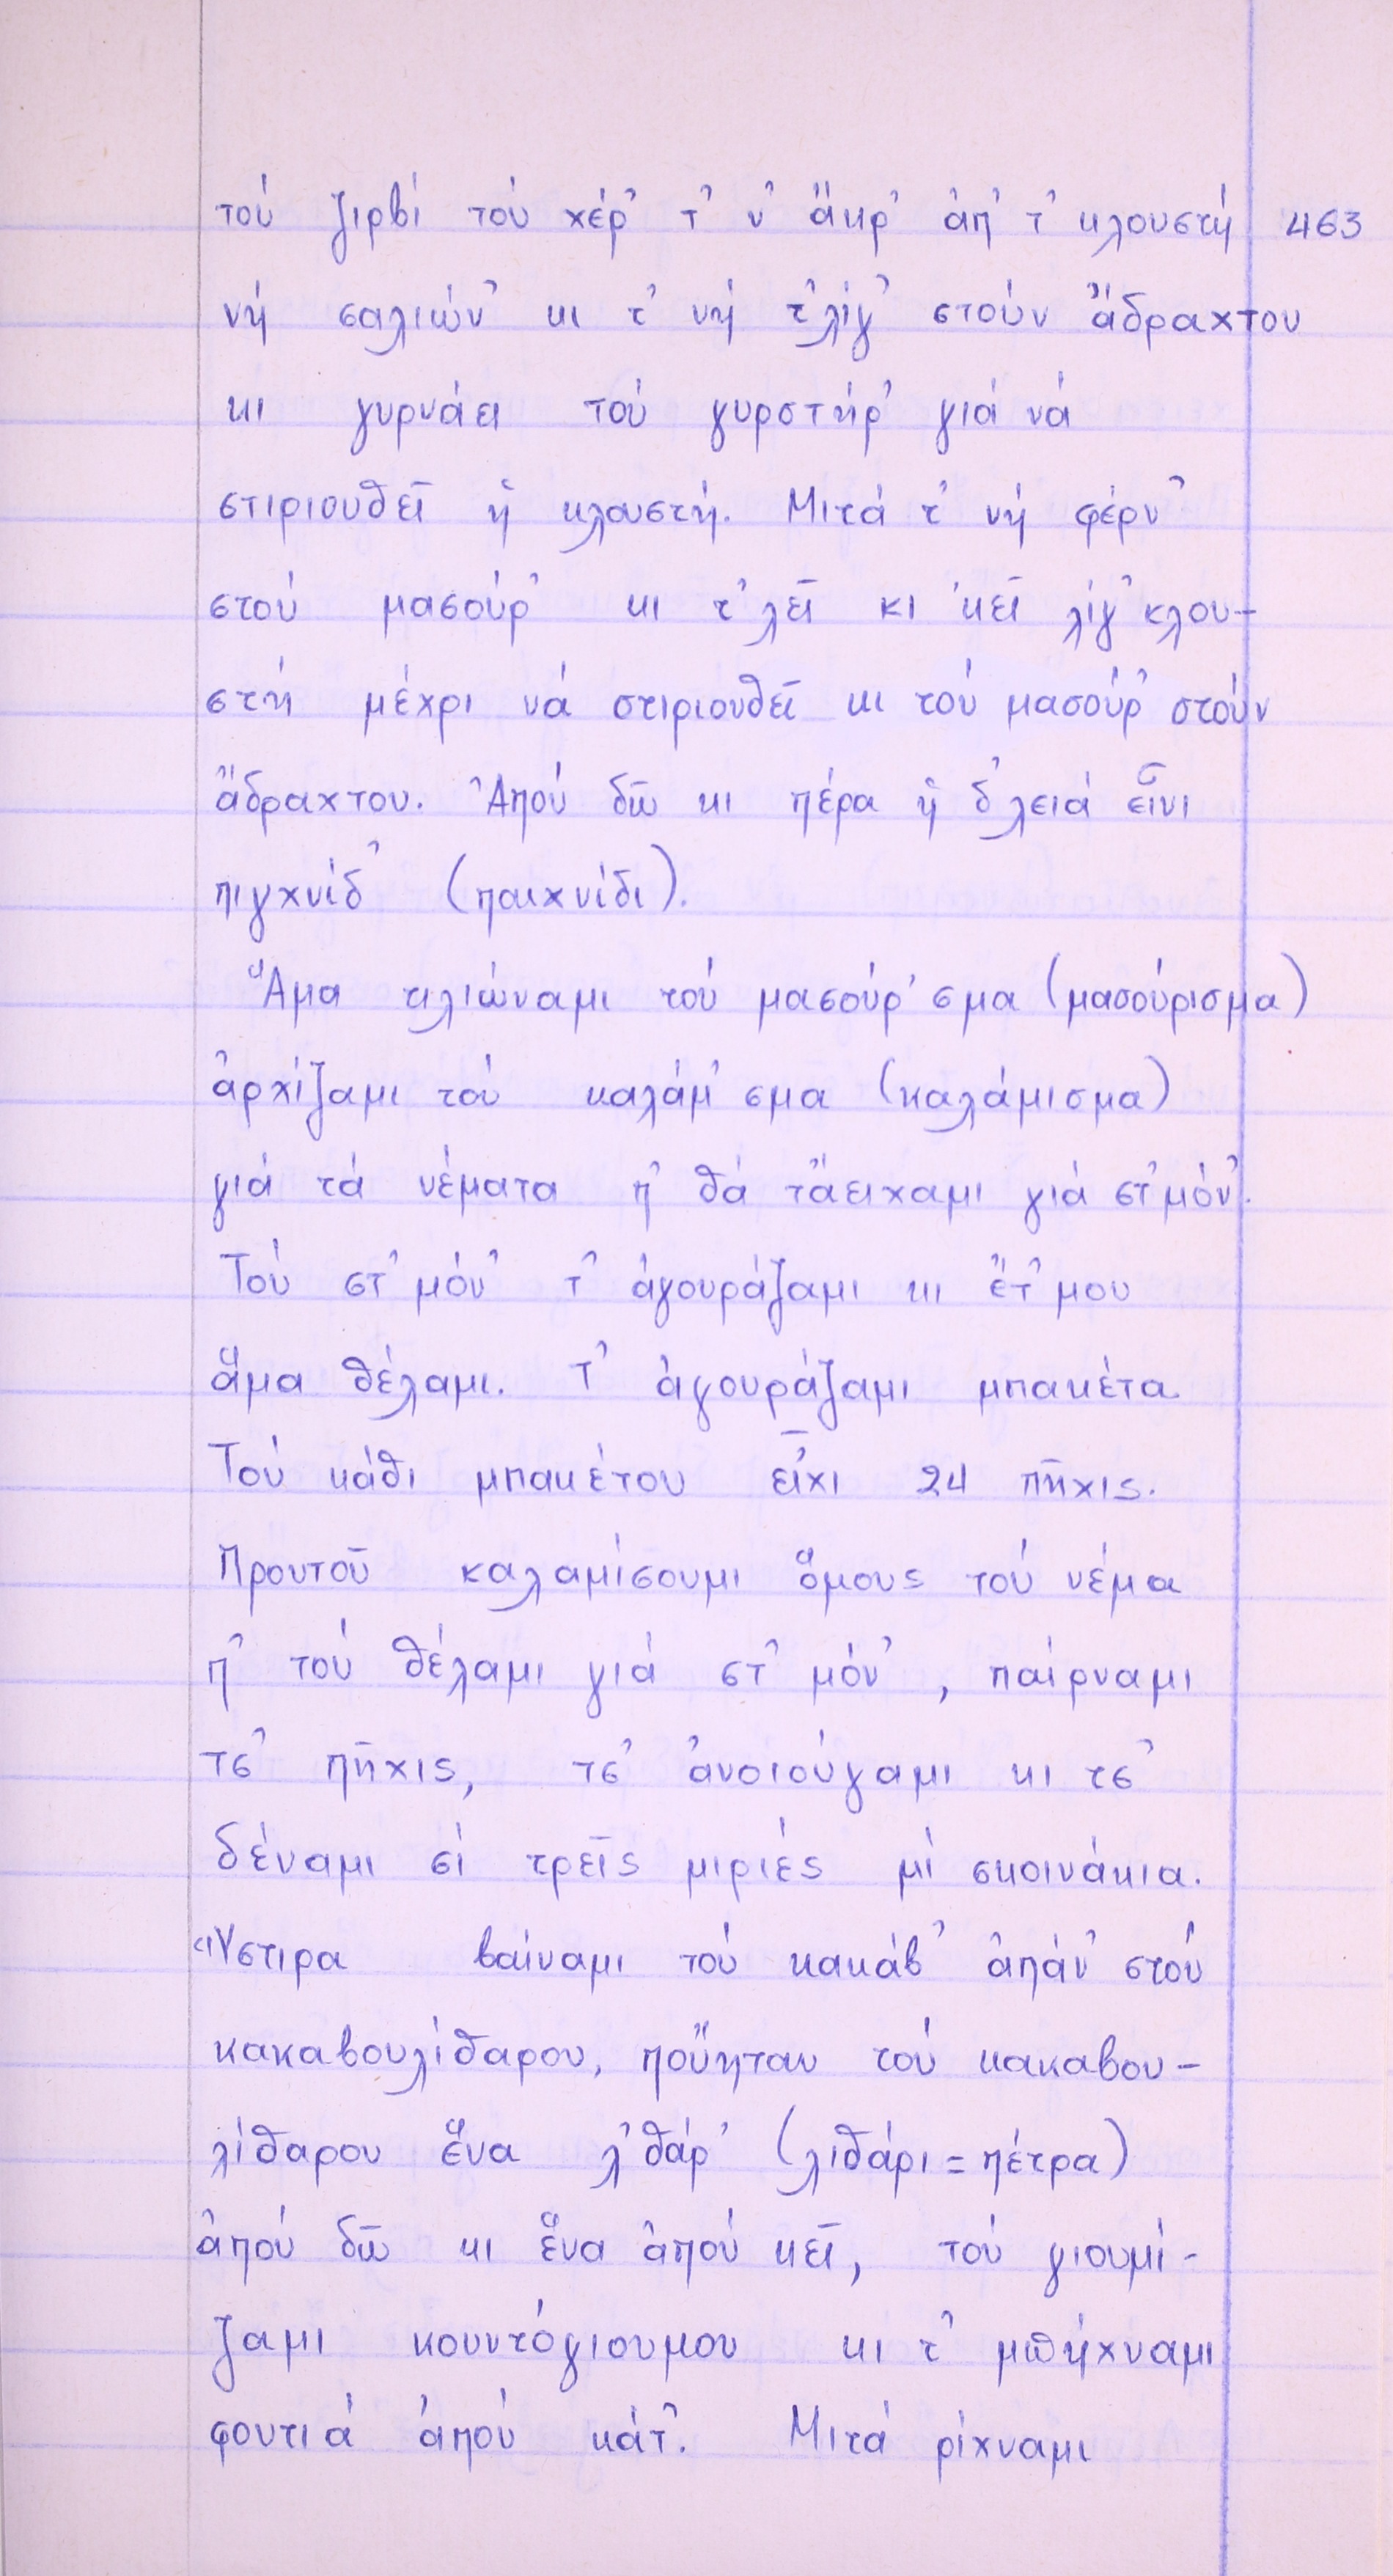 τού ζιρβί τού χέρ' τ' ν' ἄκρ' ἀπ' τ' κλουστή 463
νή σαλιών' κι τ' νή τ'λίγ' στούν ἄδραχτου
κι γυρνάει τού γυρστήρ' γιά νά
στιριουθεῖ ἡ κλουστή. Μιτά τ' νή φέρν'
στού μασούρ' κι τ'λεῖ κι 'κεῖ λίγ' κλου-
στή μέχρι νά στιριουθεῖ κι τού μασούρ' στούν
ἄδραχτου. Ἀπού δῶ κι πέρα ἡ δ'λειά εἶνι
πιχνίδ' (παιχνίδι).
Ἅμα τιλιώναμι τού μασούρ'σμα (μασούρισμα)
ἀρχίζαμι τού καλάμ'σμα (καλάμισμα)
γιά τά νέματα π' θά τἄειχαμι γιά στ'μόν'.
Τού στ'μόν' τ' ἀγουράζαμι κι ἔτ'μου
ἅμα θέλαμι. Τ' ἀγουράζαμι μπακέτα.
Τού κάθι μπακέτου εἶχι 24 πῆχις.
Προυτοῦ καλαμίσουμι ὅμους τού νέμα
π' τού θέλαμι γιά στ'μόν', παίρναμι
τσ' πῆχις, τσ' ἀνοιούγαμι κι τσ'
δέναμι σί τρεῖς μιριές μί σκοινάκια.
Ὕστιρα βαίναμι τού κακάβ' ἀπάν' στού
κακαβουλίθαρου, ποὔηταν τού κακαβου-
λίθαρου ἕνα λ'θάρ' (λιθάρι = πέτρα)
ἀπού δῶ κι ἕνα ἀπού κεῖ, τού γιουμί-
ζαμι κουντόγιουμου κι τ' μπήχναμι
φουτιά ἀπού κάτ'. Μιτά ρίχναμι